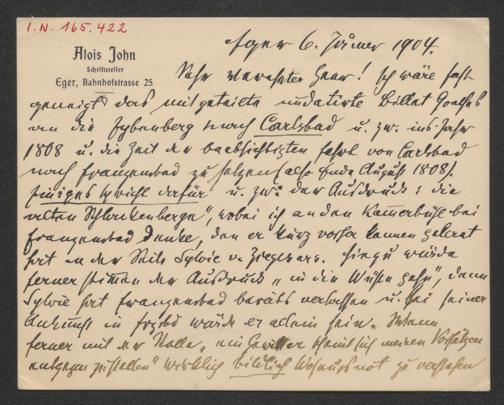 I.N. 165.422
Alois John
Schriftsteller
Eger, Bahnhofstrasse 25
Eger 6. Jänner 1904.
Sehr verehrter Herr! Ich wäre fast
geneigt das mitgeteilte undatirte Billet Goethes
an die Eybenberg nach Carlsbad u. zw. ins Jahr
1808 u. die Zeit der beabsichtigten Fahrt von Carlsbad
nach Franzensbad zu setzen (also Ende August 1808).
Einiges spricht dafür u. zw. der Ausdruck: die
alten Schlackenberge", wobei ich an den Kammerbühl bei
Franzensbad denke, den er kurz vorher kennen gelernt
hat in der Seite Sylvie v. Ziegesars. Hiezu würde
ferner stimmen der Ausdruck „in die Wüste gehn", denn
Sylvie hat Franzensbad bereits verlassen u. bei seiner
Ankunft in Frzsbd würde er allein sein. Wenn
ferner mit der Stelle „ein Gewitter scheint sich meinen Vorsätzen
entgegen zu stellen" wirklich bildlich Wohnungsnot zu verstehen